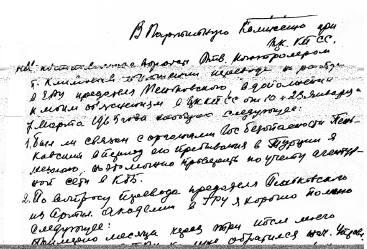 В Партийную Комиссию при
ЦК КПСС.
на поставленные Вопросы Отв. контролером
т. Климовым о
в ГРУ предателя Пеньковского в дополнении
к моим объяснениям в ЦК КПСС от 10 и 23 января и
7 марта 1965 года сообщаю следующее:
1. Был ли связан с органами Госбезопасности Пень-
ковский в период его пребывания в Турции я
не знаю, возможно проверить по учету агентур-
ной сети в КГБ.
2. По вопросу перевода предателя Пеньковского
из Артил. академии в ГРУ я хорошо помню
следующее:
Примерно месяца через три после моего
обратился